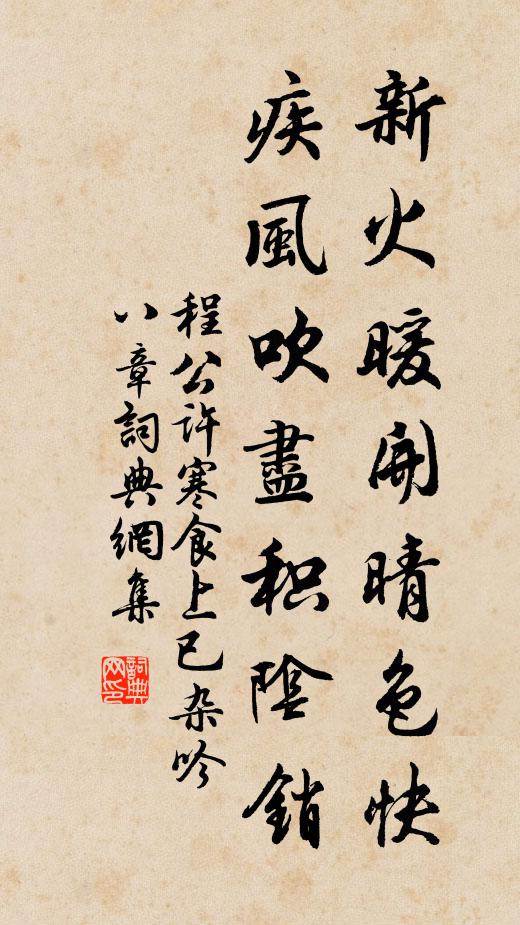 新火暖開晴色快
疾風吹盡积陰銷
程公许寒食上已杂吟
八章詞典網集
詞典
网印